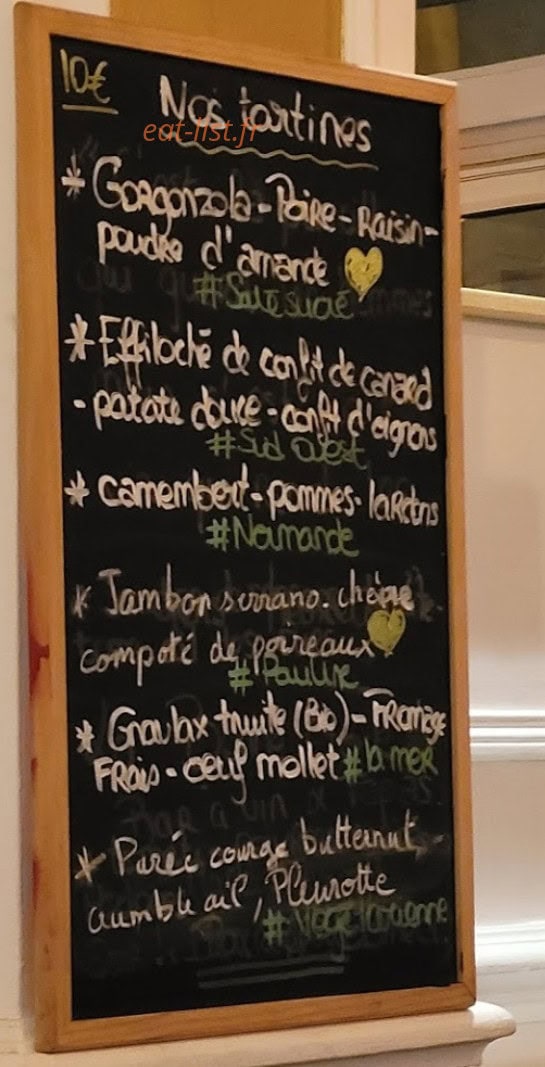 10€
Nos tartines
eat-list.fr
* Gorgonzola - Poire - Raisin -
poudre d'amande
#Salésucré
* Effiloché de confit de canard
- patate douce - confit d'oignons
#Sud ouest
* camembert - pommes - lardons
#Normande
* Jambon serrano. chèvre
compoté de poireaux
* Gravlax truite (Bio) - Fromage
Frais - oeuf mollet #la mer
* Purée courge butternut -
ail, Pleurotte
#Végétarienne